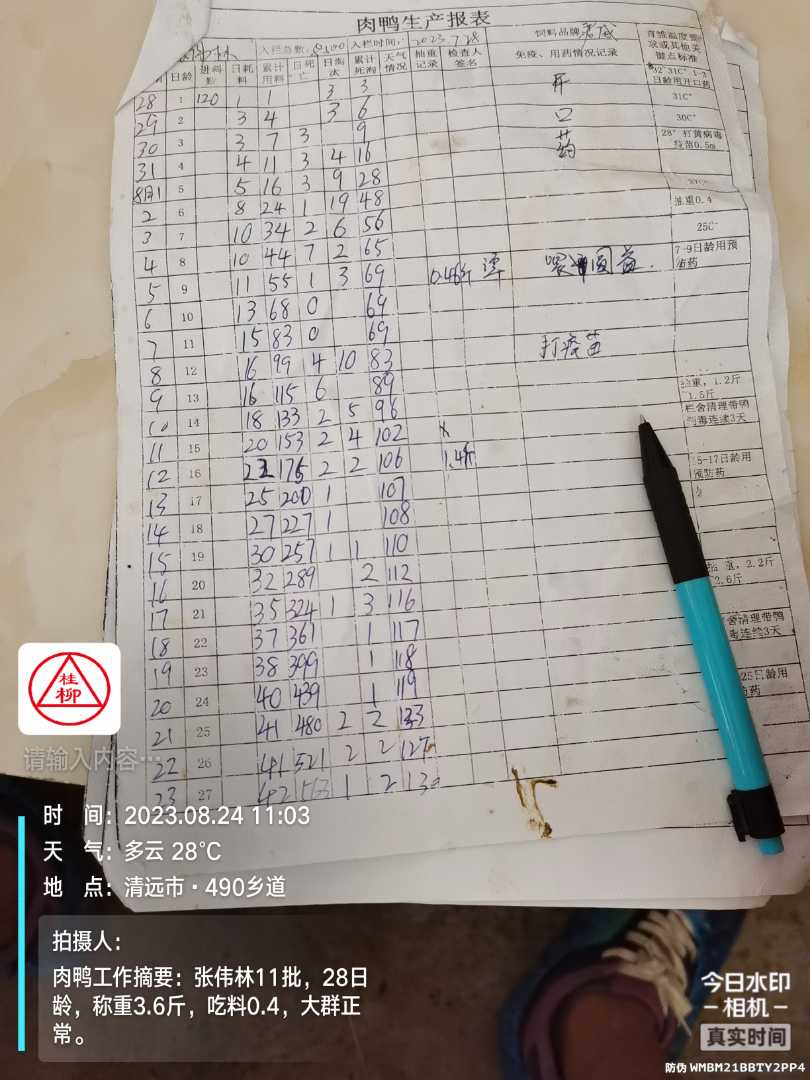 肉鸭生产报表
入栏总数: 入栏时间: 2023.7.28 饲料品牌:
日龄 进料数 日耗料 累计用料 日死亡 日淘汰 累计死淘 天气情况 抽重记录 检查人签名 免疫、用药情况记录 育雏温度要求或其他关键点标准
28 1 120 1 1 3 3 开 32°31C°1-3日龄用开口药
29 2 3 4 3 6 口 31C°
30 3 3 7 3 9 药 30C°
31 4 4 11 3 4 16 28°打黄病毒疫苗0.5m
8月1 5 5 16 3 9 28
2 6 8 24 1 19 48 抽重0.4
3 7 10 34 2 6 56 25C°
4 8 10 44 7 2 65 7-9日龄用预防药
5 9 11 55 1 3 69 0.46斤
6 10 13 68 0 69
7 11 15 83 0 69
8 12 16 99 4 10 83 打疫苗
9 13 16 115 6 89 抽重, 1.2斤 1.5斤
10 14 18 133 2 5 96 栏舍清理带鸭消毒连续3天
11 15 20 153 2 4 102
12 16 23 176 2 2 106 1.4斤 5-17日龄用预防药
13 17 25 200 1 107
14 18 27 227 1 108
15 19 30 257 1 1 110
16 20 32 289 2 112 抽重, 2.2斤 2.6斤
17 21 35 324 1 3 116
18 22 37 361 1 117 舍清理带鸭毒连续3天
19 23 38 399 1 118
20 24 40 439 1 119 25日龄用药
21 25 41 480 2 2 123
22 26 41 521 2 2 127
23 27 42 563 1 2 130
桂柳
请输入内容…
时 间: 2023.08.24 11:03
天 气: 多云 28℃
地 点: 清远市·490乡道
拍摄人:
肉鸭工作摘要: 张伟林11批, 28日
龄, 称重3.6斤, 吃料0.4, 大群正
常。
今日水印
-相机-
真实时间
防伪 WMBM21BBTY2PP4